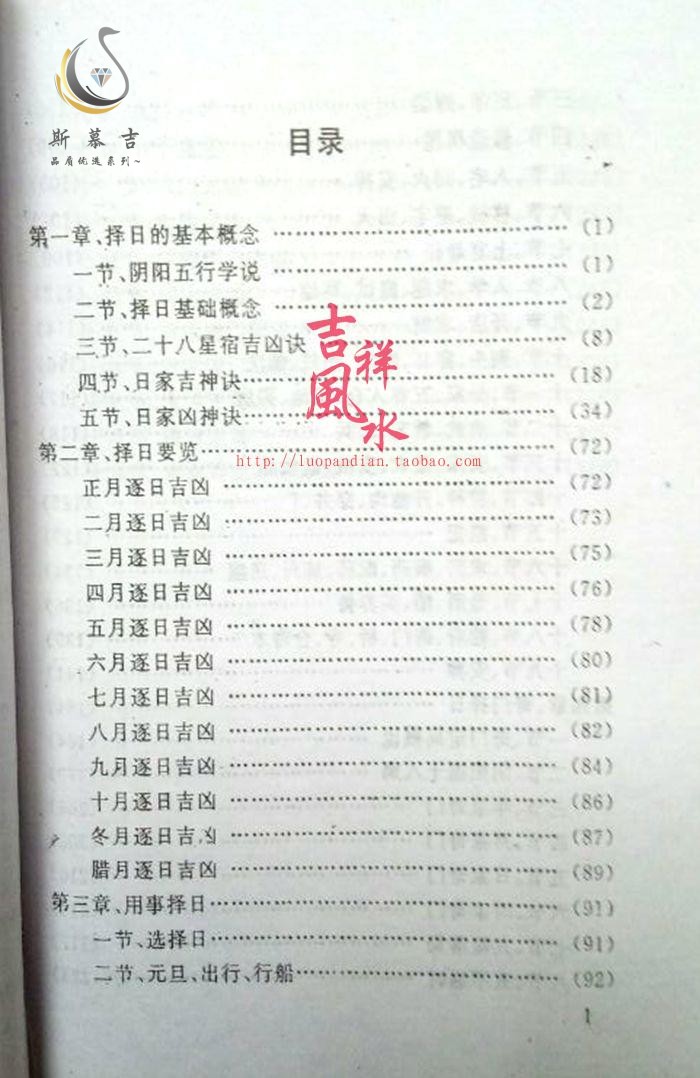 斯慕吉
品质优选系列~
目录
第一章、择日的基本概念 ………………………… (1)
一节、阴阳五行学说 ………………………… (1)
二节、择日基础概念 ………………………… (2)
三节、二十八星宿吉凶诀 ………………………… (8)
四节、日家吉神诀 ………………………… (18)
五节、日家凶神诀 ………………………… (34)
第二章、择日要览 ………………………… (72)
吉祥風水
http://luopandian.taobao.com/
正月逐日吉凶 ………………………… (72)
二月逐日吉凶 ………………………… (73)
三月逐日吉凶 ………………………… (75)
四月逐日吉凶 ………………………… (76)
五月逐日吉凶 ………………………… (78)
六月逐日吉凶 ………………………… (80)
七月逐日吉凶 ………………………… (81)
八月逐日吉凶 ………………………… (82)
九月逐日吉凶 ………………………… (84)
十月逐日吉凶 ………………………… (86)
冬月逐日吉凶 ………………………… (87)
腊月逐日吉凶 ………………………… (89)
第三章、用事择日 ………………………… (91)
一节、选择日 ………………………… (91)
二节、元旦、出行、行船 ………………………… (92)
1